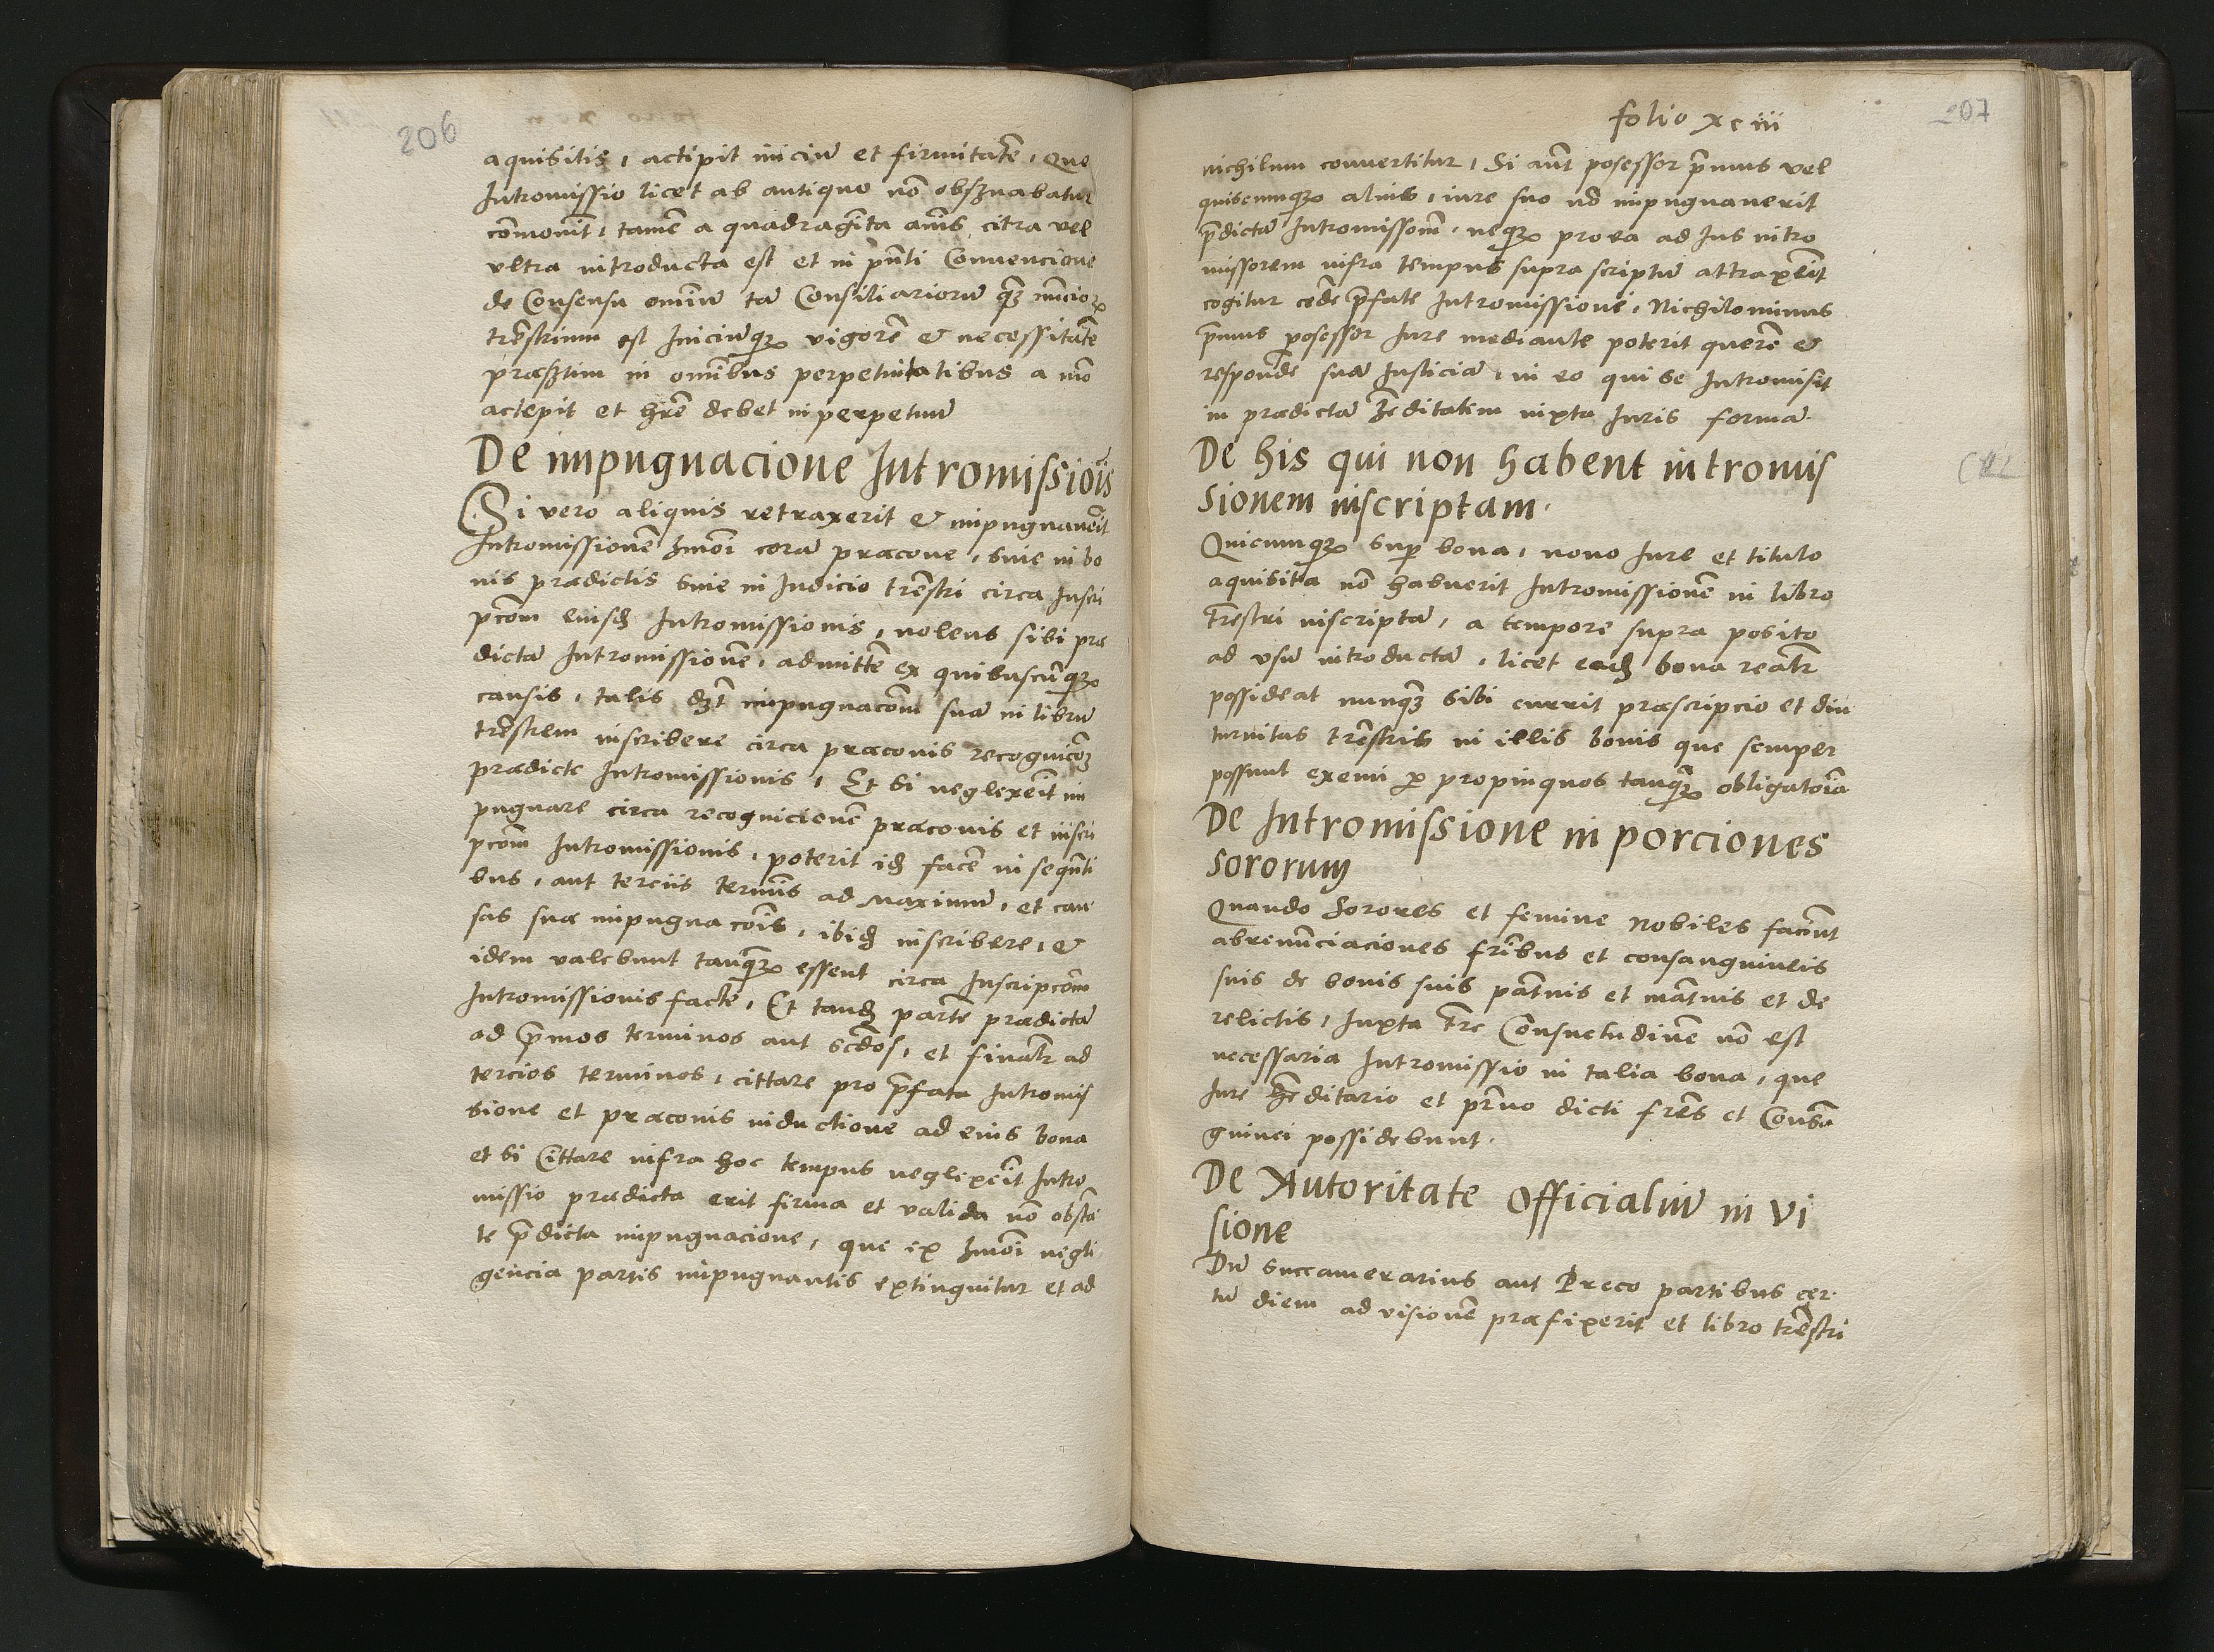 206
aquisitis, actipit iniciũ et firmitatẽ, Que
Intromissio licet ab antiquo nõ obsʒuabatur
cõmonit̃, tamẽ a quadragĩta añis citra vel
vltra introducta est et in pñti Conuencione
de Consensu omĩuʒ tã Consiliarioruʒ qʒ nũcioꝝ
tr̃estrium est Iniciuʒqʒ vigorẽ et necessitatẽ
præsʒtim in omĩbus perpetuitatibus a mõ
actepit et hr̃e debet in perpetuũ
De impugnacione Intromissiõis
Si vero aliquis retraxerit et impugnauẽit
Intromissionẽ ʒmõi corã præcone, siue in bo
nis prædictis siue in Iudicio tr̃estri circa Inscri
pcõm eiusdʒ Intromissionis, nolens sibi præ
dictã Intromissionẽ, admittẽ ex quibuscũqʒ
causis, talis dʒt impugnacõm suã in librũ
tr̃estrem inscribere circa præconis recognicõʒ
prædicte Intromissionis, Et si neglexẽit im
pugnare circa recognicionẽ præconis et inscri
pcõm Intromissionis, poterit idʒ facẽ in seqũti
bus, aut terciis termĩs ad maximuʒ, et cau
sas suæ impugnacõis, ibidʒ inscribere, et
idem valebunt tanqʒ essent circa Inscripcõm
Intromissionis facte, Et tandʒ partẽ prædictã
ad p̃mos terminos aut sc̃dos, et finalr̃ ad
tercios terminos, cittare pro p̃fata Intromis
sione et præconis inductione ad eius bona
et si Cittare infra hoc tempus neglexẽit Intro
missio prædicta erit firma et valida nõ obstã
te p̃dicta impugnacione, que ex ʒmõi negli
gencia partis impugnantis extinguitur et ad
folio xciii
207
nichilum conuertitur, Si aũt posessor p̃mus vel
quiscumqʒ alius, iure suo nõ impugnauerit
p̃dictã Intromissioñm, neqʒ pro ea ad Ius intro
missorem infra tempus supra scriptũ attraxẽit
cogitur cedẽ p̃fate Intromissionei, Nichilominus
p̃mus posessor Iure mediante poterit querẽ et
respondẽ suã Iusticiã, in eo qui se Intromisit
in prædictã ʒeditatem iuxta Iuris formã.
De his qui non habent intromis
sionem inscriptam.
Quicumqʒ suꝑ bona, nouo Iure et titulo
aquisita nõ habuerit Intromissionẽ in libro
tr̃estri inscriptã, a tempore supra posito
ad vsũ introductã, licet eadʒ bona realr̃
possideat nunqʒ sibi currit præscripcio et diu
turnitas tr̃estris in illis bonis que semper
possunt exemi ꝑ propinquos tanqʒ obligatoria
De Intromissione in porciones
sororum
Quando Sorores et femine nobiles faciũt
abrenũciaciones fr̃ibus et consanguineis
suis de bonis suis pat̃nis et mat̃nis et de
relictis, Iuxta tr̃e Consuetudinẽ nõ est
necessaria Intromissio in talia bona, que
Iure hẽditario et pr̃uo dicti fr̃es et Consã
guinei possidebunt.
De Autoritate Officialiũ in vi
sione
Dũ Succamerarius aut Preco partibus cer
tũ diem ad visionẽ præfixerit et libro tr̃estri